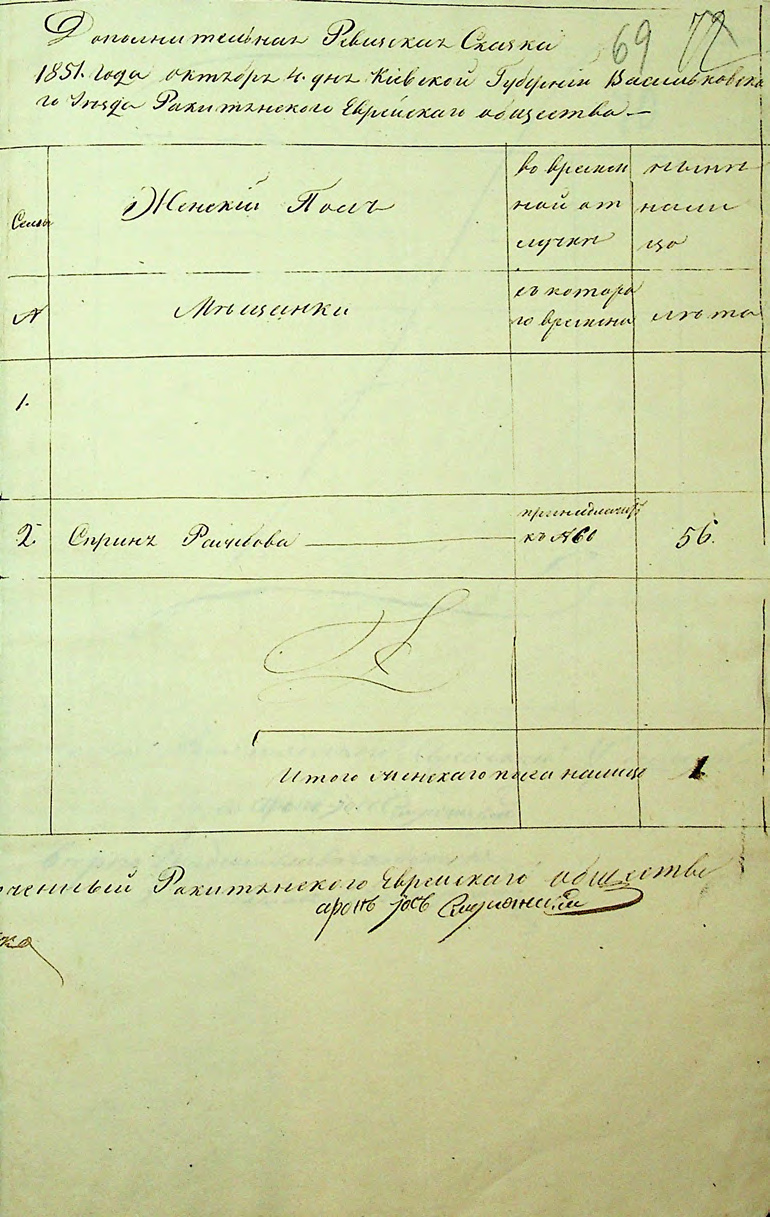 69 72
Дополнительная Ревизская Сказка
1851. года октября 4. дня Кіевской Губерніи Васильковска
го Уезда Ракитянского Еврейскаго общества
Семьи
Женскій Полъ
во времен
ной от
лучки
ныне
нали
цо
№
Мещанки
съ которо
го времени
лета
1.
2. Сприня
къ № 60
56.
Итого женскаго пола налицо 1
ченный Ракитянского Еврейскаго общества
аронъ